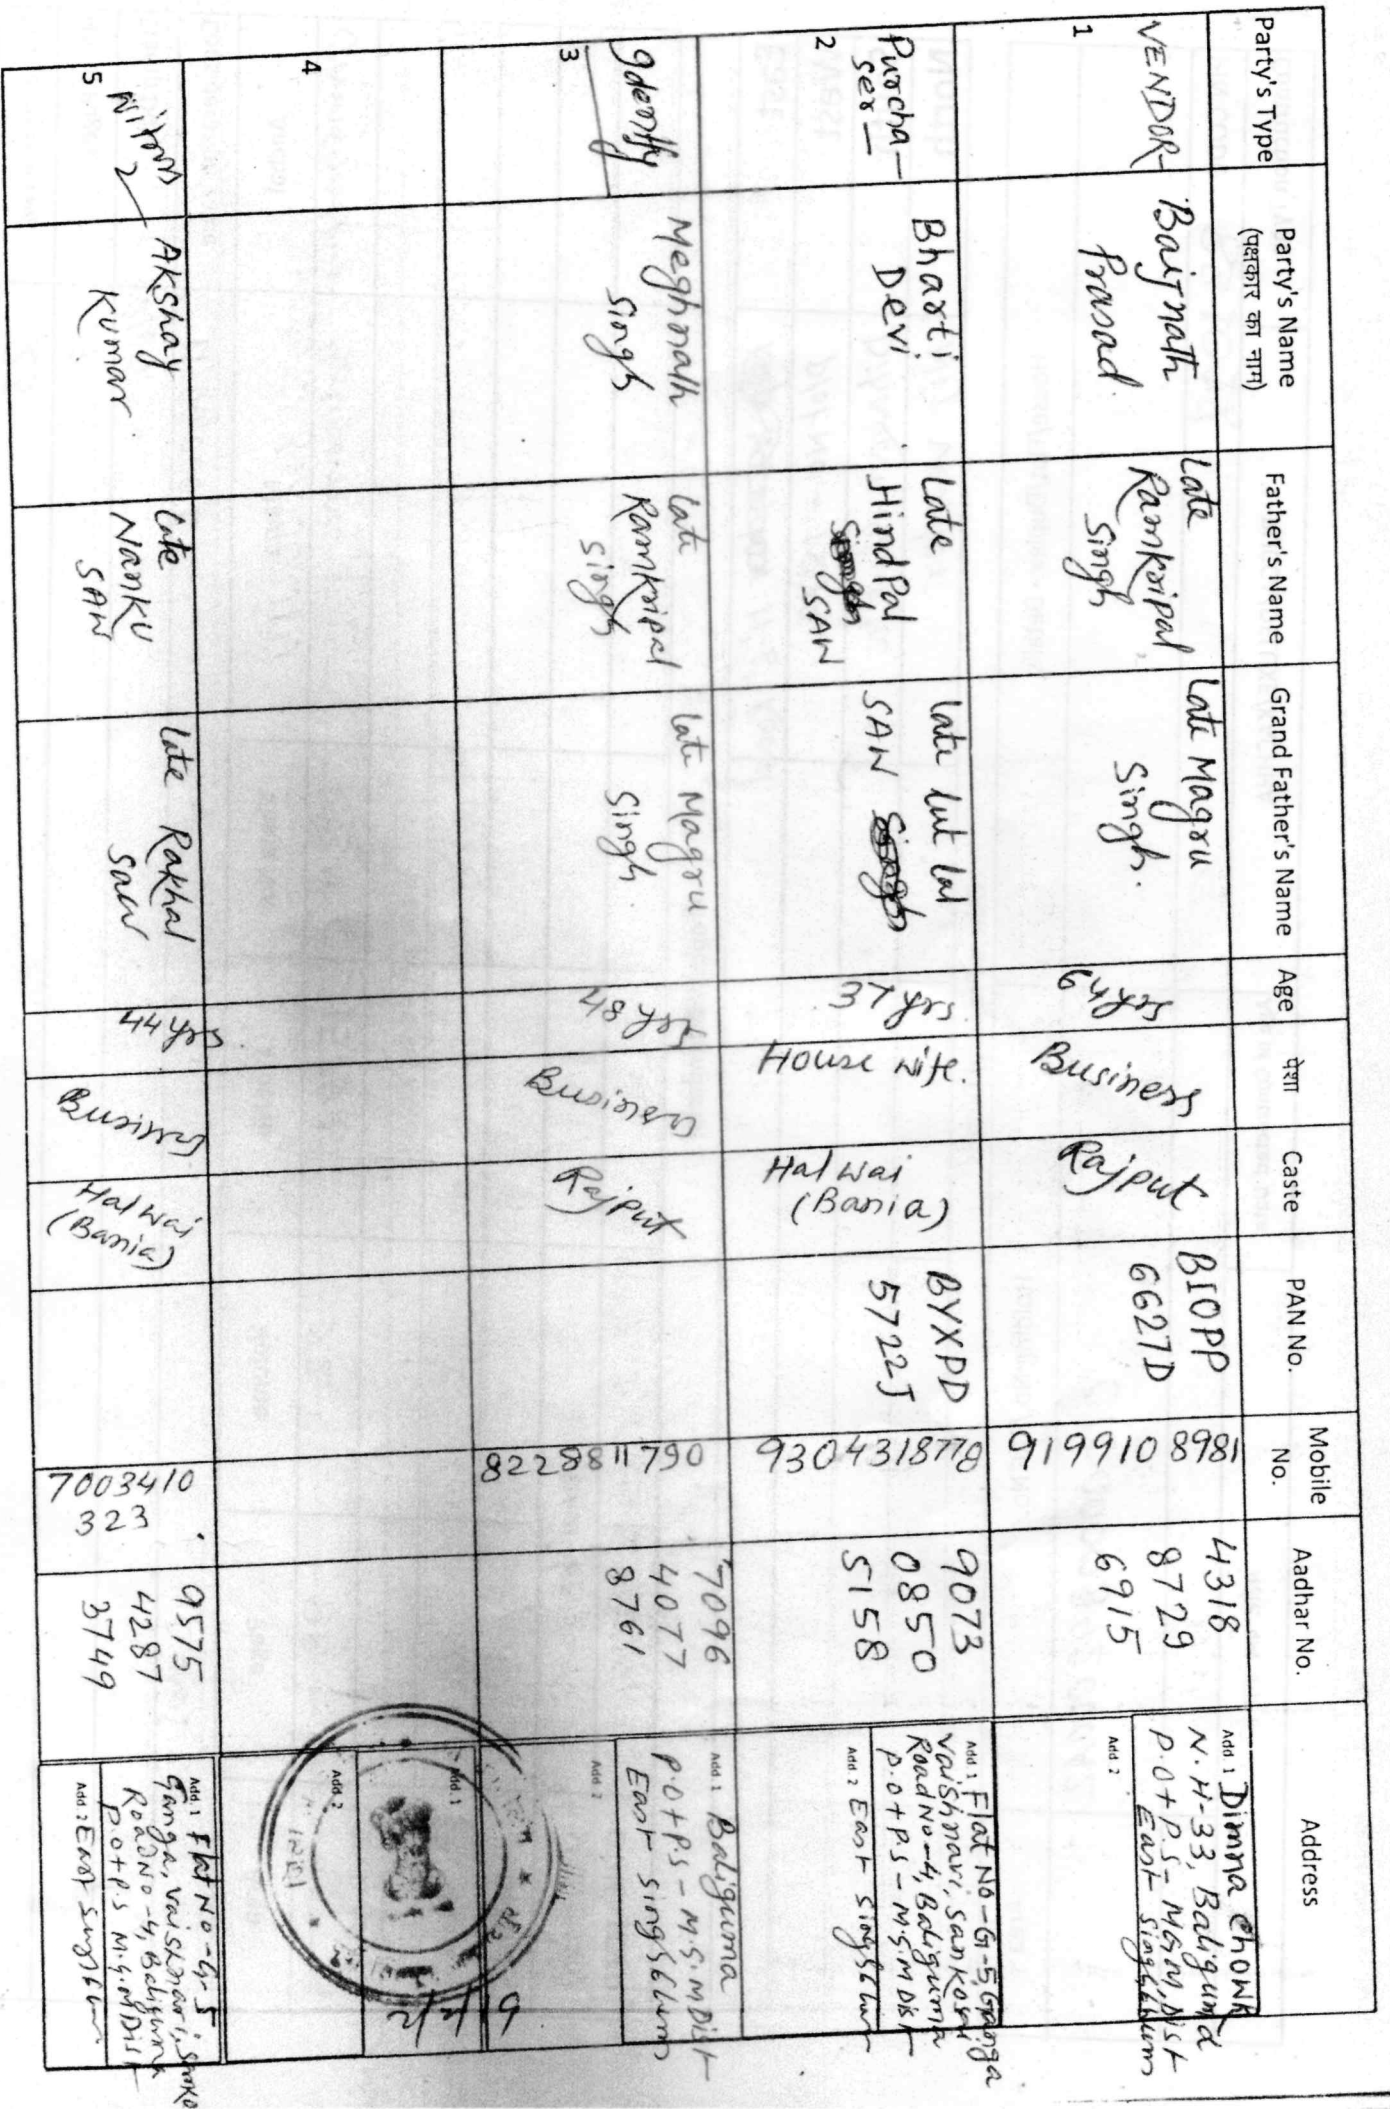 Party's Type
Party's Name
(पक्षकार का नाम)
Father's Name
Grand Father's Name
Age
पेशा
Caste
PAN No.
Mobile
No.
Aadhar No.
Address
VENDOR
1
Baijnath
Prasad
Late
Ramkripal
Singh
Late Magru
Singh.
64 yrs
Business
Rajput
BIOPP
6627D
9199108981
4318
8729
6915
Add 1 Dimna Chowk
N.H-33, Baliguma
P.O+P.S- MGM, Dist
East Singhbhum
Add 2
Purcha-
ser-
2
Bharti
Devi
Late
Hind Pal
SAW
Late lut lal
SAW
37 yrs.
House wife.
Halwai
(Bania)
BYXPD
5722J
9304318778
9073
0850
5158
Add 1 Flat No-G-5, Ganga
Vaishnavi, Sankosai
Road No-4, Baliguma
P.O+P.S-M.G.M Dist
Add 2 East Singhbhum
Identify
3
Meghnath
Singh
Late
Ramkripal
Singh
Late Magru
Singh
48 yrs
Business
Rajput
8228811790
7096
4077
8761
Add 1 Baliguma
P.O+P.S-M.G.M Dist
East Singhbhum
Add 2
4
Add 1
Add 2
2/2/19
5
Witness
2
Akshay
Kumar
Late
Nanku
SAW
Late Rakhal
Saw
44 yrs
Business
Halwai
(Bania)
7003410
323
9575
4287
3749
Add 1 Flat No-G-5
Ganga, Vaishnavi,
Road No-4, Baliguma
P.O+P.S M.G.M Dist
Add 2 East Singhbhum